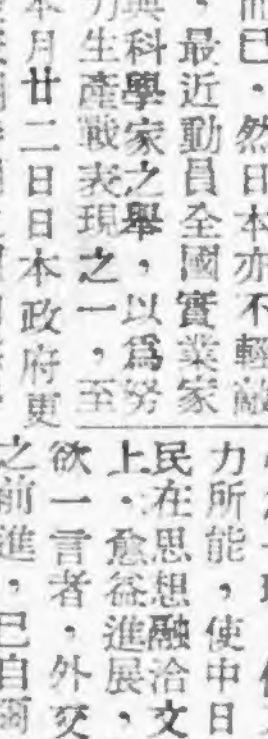 而已，然日本亦不輕敵
，最近動員全國實業家
與科學家之舉，以爲努
力生產戰表現之一，至
本月廿二日日本政府更
力所能，使中日
民在思想融洽文
上，愈益進展，
欲一言者，外交
之前進，已自